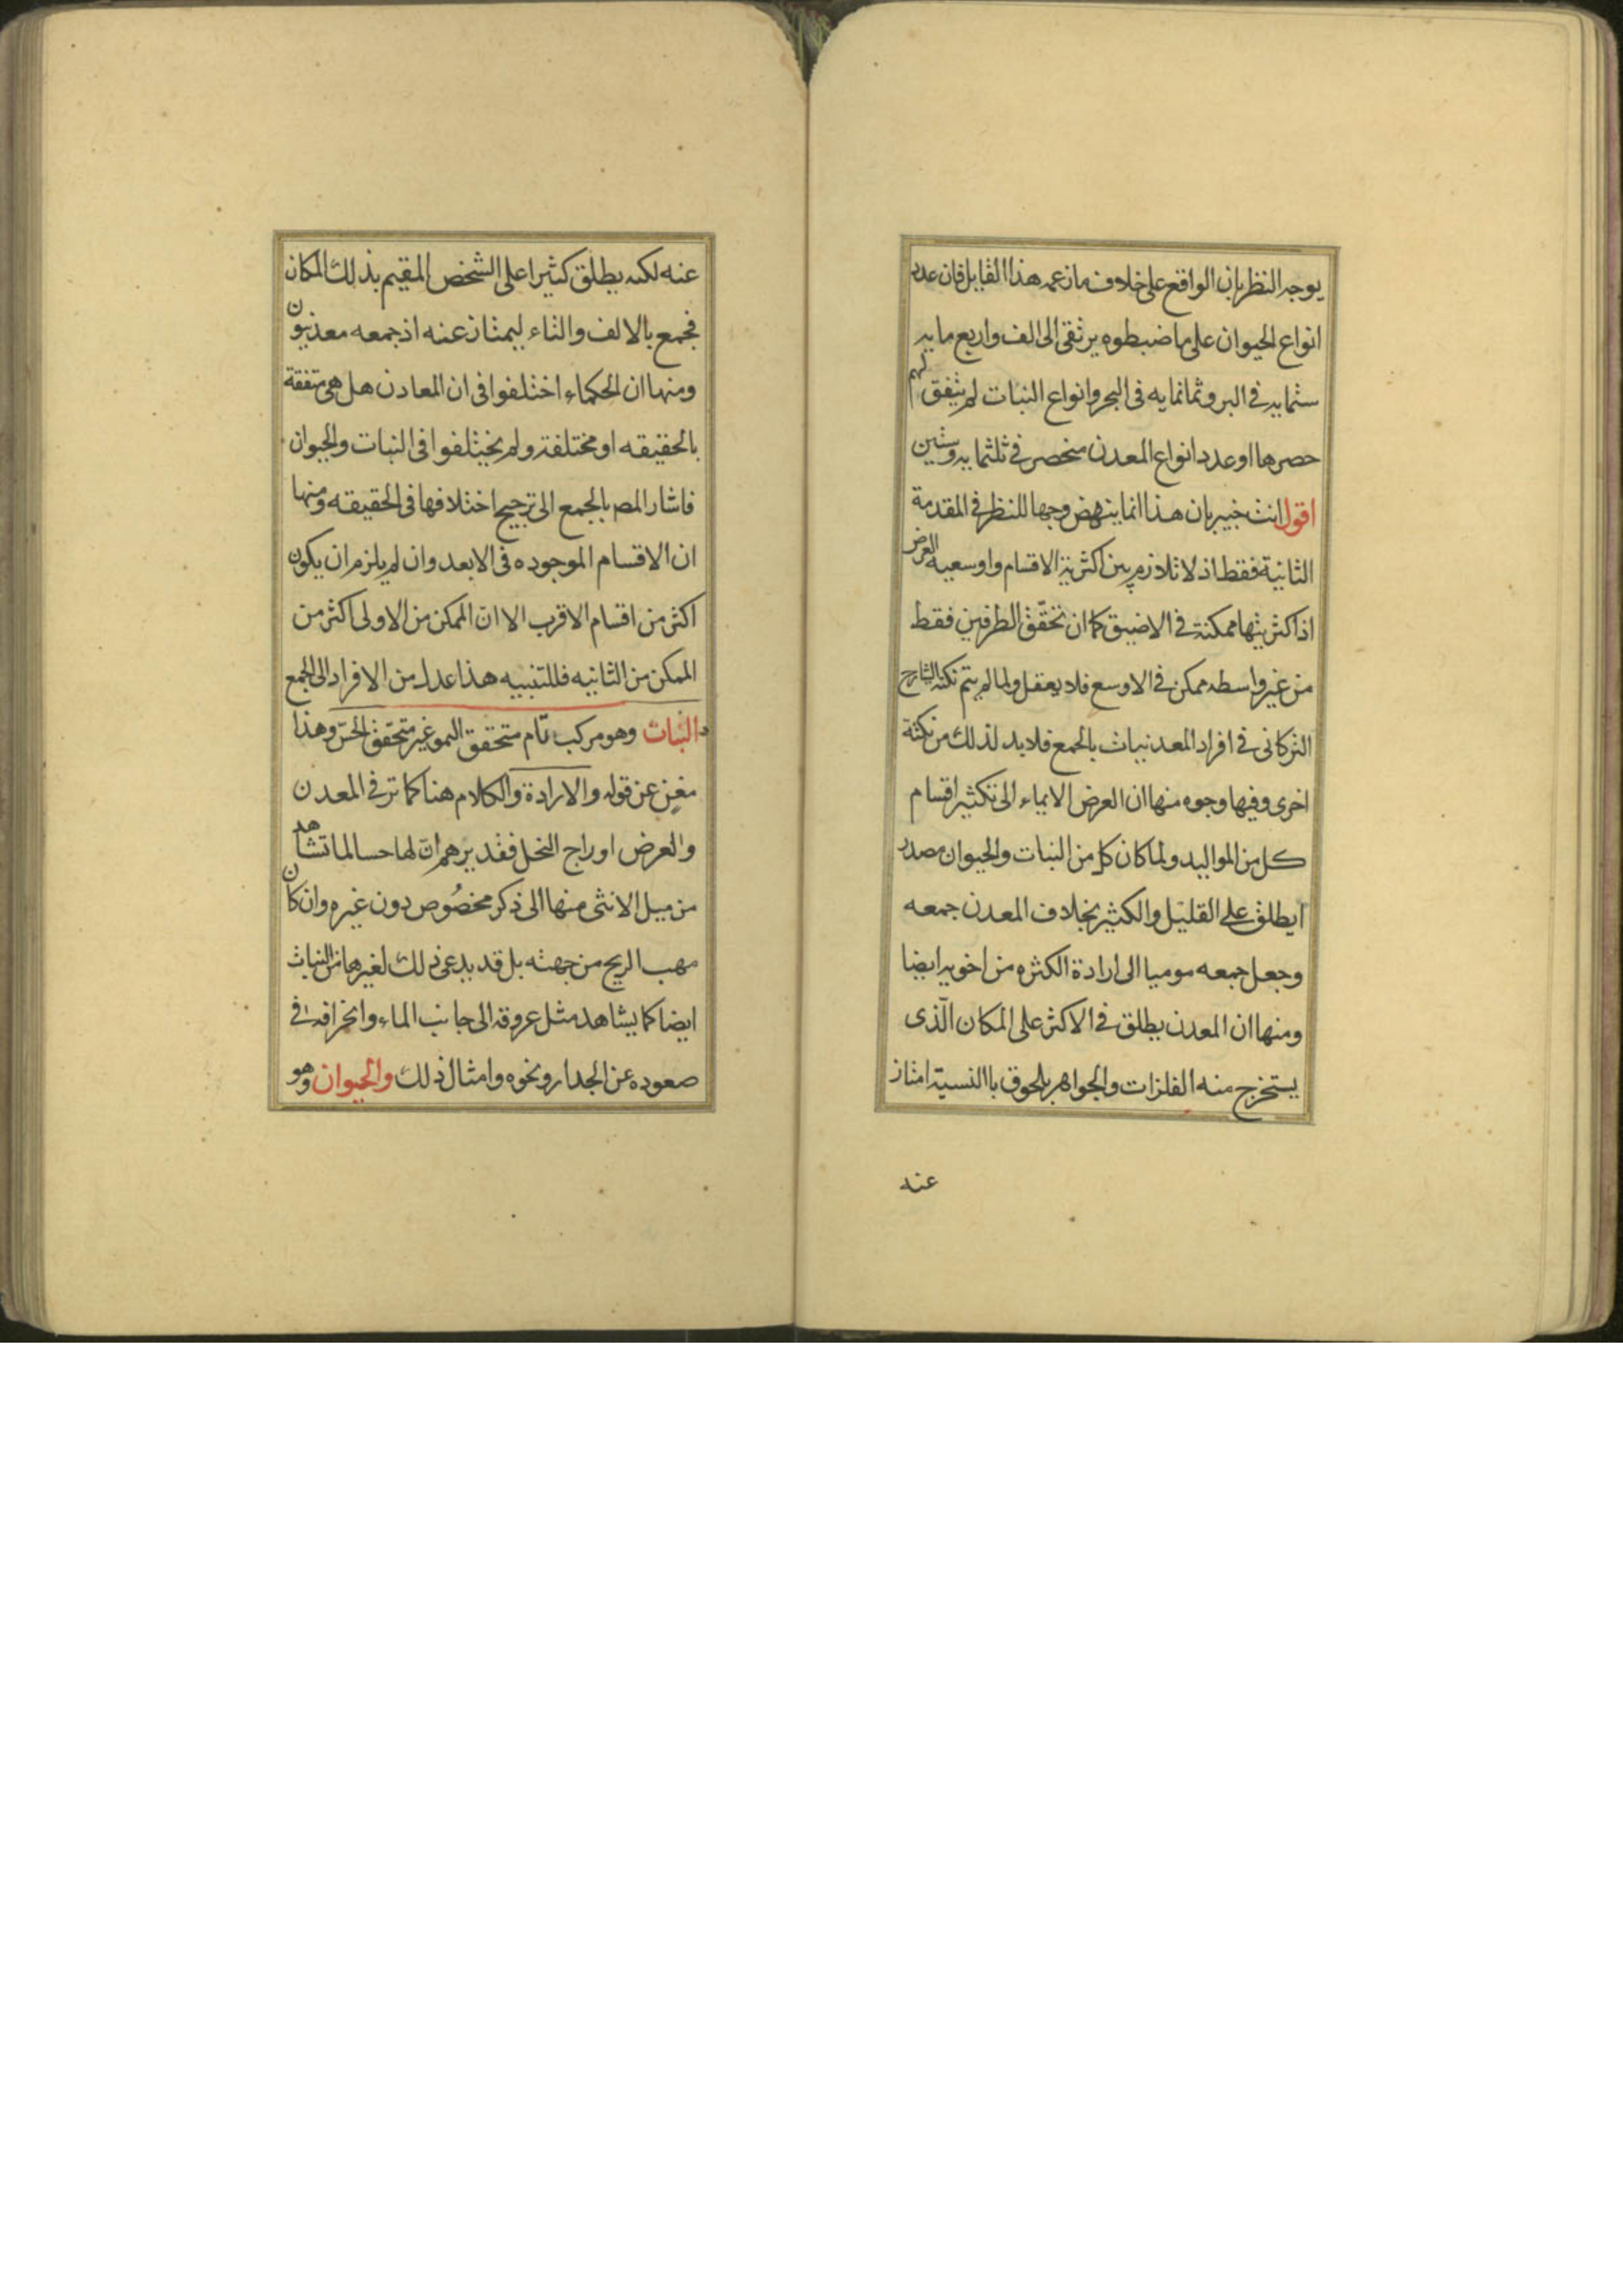 يوجه النظر بان الواقع على خلاف ما زعمه هذا القايل فان عدد
انواع الحيوان على ما ضبطوه يرتقى الى الف واربع مايه
ستمايه فى البر وثمانمايه فى البحر وانواع النبات لم يتفق لهم
حصرها او عدد انواع المعدن منحصر فى ثلثمايه وستين
اقول انت خبير بان هذا انما ينهض وجها للنظر فى المقدمة
الثانية فقط اذ لا تلازم بين اكثرية الاقسام واوسعيه العرض
اذ اكثريتها ممكنة فى الاضيق كما ان تحقّق الطرفين فقط
من غير واسطه ممكن فى الاوسع فلا يعقل ولما لم يتم نكته الشارح
التركانى فى افراد المعدنيات بالجمع فلابد لذلك من نكتة
اخرى وفيها وجوه منها ان العرض الايماء الى تكثير اقسام
كل من المواليد ولما كان كل من النبات والحيوان مصدر
ايطلق على القليل والكثير بخلاف المعدن جمعه
وجعل جمعه موميا الى ارادة الكثره من اخويه ايضا
ومنها ان المعدن يطلق فى الاكثر على المكان الّذى
يستخرج منه الفلزات والجواهر بلحوق يا النسبة امتاز
عنه
عنه لكنه يطلق كثيرا على الشخص المقيم بذلك المكان
فجمع بالالف والتاء ليمتاز عنه اذ جمعه معدنيون
ومنها ان الحكماء اختلفوا فى ان المعادن هل هى متفقة
بالحقيقه او مختلفة ولم يختلفوا فى النبات والحيوان
فاشار المص بالجمع الى ترجيح اختلافها فى الحقيقه ومنها
ان الاقسام الموجوده فى الابعد وان لم يلزم ان يكون
اكثر من اقسام الاقرب الا ان الممكن من الاولى اكثر من
الممكن من الثانيه فللتنبيه هذا عدل من الافراد الى الجمع
والنبات وهو مركب تام متحقق النمو غير متحقق الحسّ وهذا
مغن عن قوله والارادة والكلام هنا كما مر فى المعدن
والعرض اوراج النخل فقد يرهم ان لها حسا لما تشاهد
من ميل الانثى منها الى ذكر مخصُوص دون غيره وان كان
مهب الريح من جهته بل قد يدعى ذلك لغيرها من النبات
ايضا كما يشاهد مثل عروقه الى جانب الماء وانحرافه فى
صعوده عن الجدار ونحوه وامثال ذلك والحيوان وهو